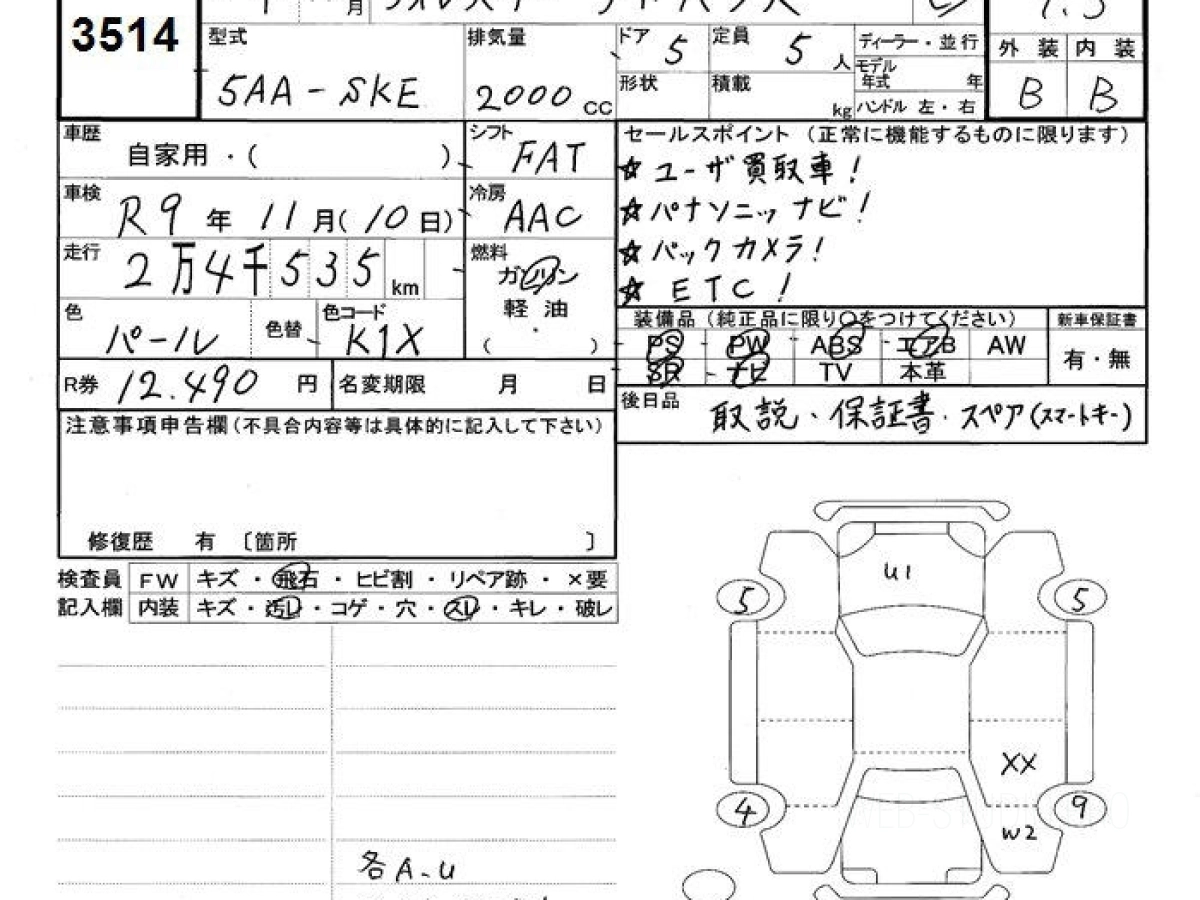 3514
月
型式 排気量 ドア 5 定員 5 人 ディーラー・並行 外装 内装
5AA-SKE 2000 CC 形状 積載 kg モデル年式 年 B B
ハンドル 左・右
車歴 自家用・( ) シフト FAT セールスポイント (正常に機能するものに限ります)
☆ユーザ買取車!
車検 R9年 11月(10日) 冷房 AAC ☆パナソニックナビ!
走行 2万4千535km 燃料 ガソリン ☆バックカメラ!
軽油 ☆ETC!
( )
色 パール 色替 色コード K1X 装備品 (純正品に限り○をつけてください) 新車保証書
PS PW ABS エアB AW 有・無
SR ナビ TV 本革
R券 12.490 円 名変期限 月 日 後日品 取説・保証書・スペア(スマートキー)
注意事項申告欄(不具合内容等は具体的に記入して下さい)
修復歴 有 〔箇所 〕
検査員 FW キズ・飛石・ヒビ割・リペア跡・×要
記入欄 内装 キズ・汚レ・コゲ・穴・スレ・キレ・破レ
U1
5 5
XX
4 9
W2
各A-U